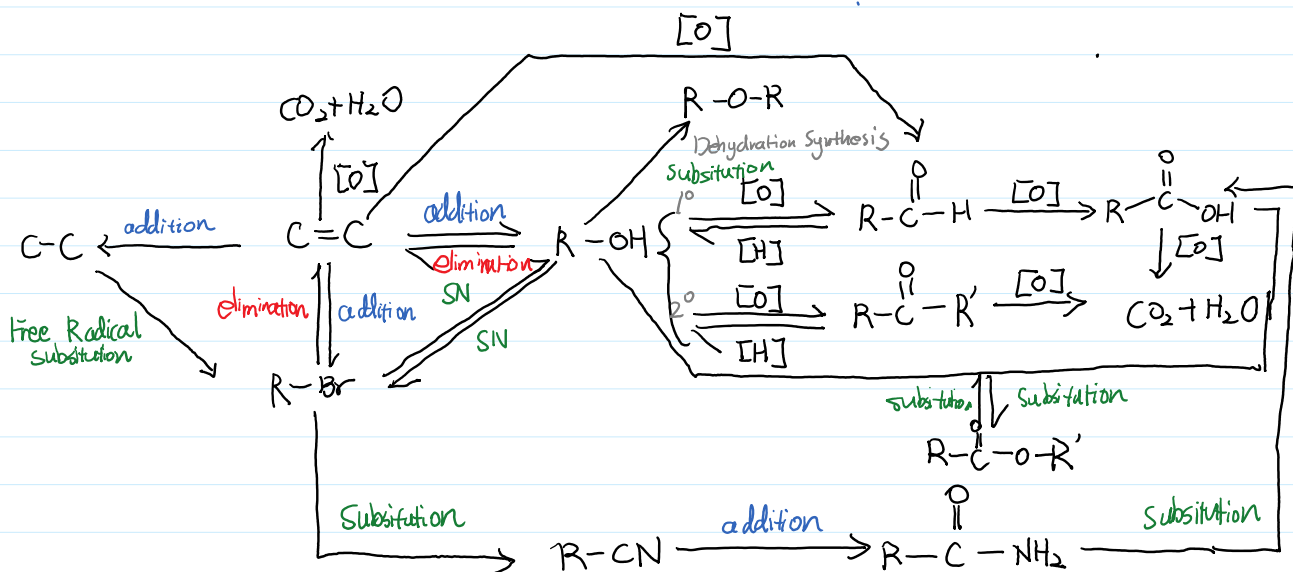 [O]
CO₂+H₂O
R-O-R
Dehydration Synthesis
subsitution
[O]
addition
C-C
C=C
addition
elimination
SN
SN
R-OH
1°
[O]
[H]
O
R-C-H
[O]
O
R-C-OH
[O]
CO₂+H₂O
2°
[O]
[H]
O
R-C-R'
[O]
elimination
addition
Free Radical
subsitution
R-Br
subsitution
Subsitution
O
R-C-O-R'
Subsitution
R-CN
addition
O
R-C-NH₂
Subsitution